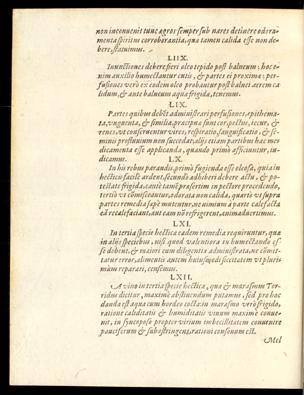 non inconuenit tunc agros semper sub nares detinere odora-
menta spiritum corroborantia, qua tamen calida esse non de-
bere, statuimus.
LIIX.
Inunctiones debere fieri oleo tepido post balneum: hoc e-
nim auxilio humectantur cutis, & partes ei proxima: per-
fusiones verò ex eodem oleo probantur post balnei aerem ca
lidum, & ante balneum aqua frigida, tenemus.
LIX.
Partes quibus debēt administrari perfusiones, epithema-
ta, vnguenta, & similia, praecipua sunt cor, pectus, iecur, &
renes, vt conseruentur vires, respiratio, sanguificatio, & se-
minis profluuium non succedat, alijs etiam partibus haec me-
dicamenta esse applicanda, quando primò afficiuntur, in-
dicamus.
LX.
In his rebus parandis, primò fugienda esse oleosa, quia in
hecticis facilè ardent, secundò adhiberi debere actu, & po-
testate frigida, cauto tamē praesertim in pectore procedendo,
tertiò vt comisceantur, adurata non calida, quarto vt supra
partes remedia saepè mutentur, ne nimium à parte calefacta
eā recalefaciant, aut eam nō refrigerent, animaduertimus.
LXI.
In tertia specie hectica eadem remedia requiruntur, quae
in alijs speciebus, nisi quod valentiora vt humectando es-
se debent, & maiori cum diligentia administrari, ne comit-
tatur error, alimentis autem huiusmodi siccitatem vt pluri-
mùm reparari, censemus.
LXII.
A vino in tertia specie hectica, qua & marasmum Tor-
ridus dicitur, maximè abstinendum putamus, sed pro hac
danda est aqua cum hordeo cocta: in marasmo verò frigido,
ratione caliditatis & humiditatis vinum maximè conue-
nit, in syncoposo propter virium imbecillitatem conuenire
pauciferum & substringens, rationi consonum est.
Mel